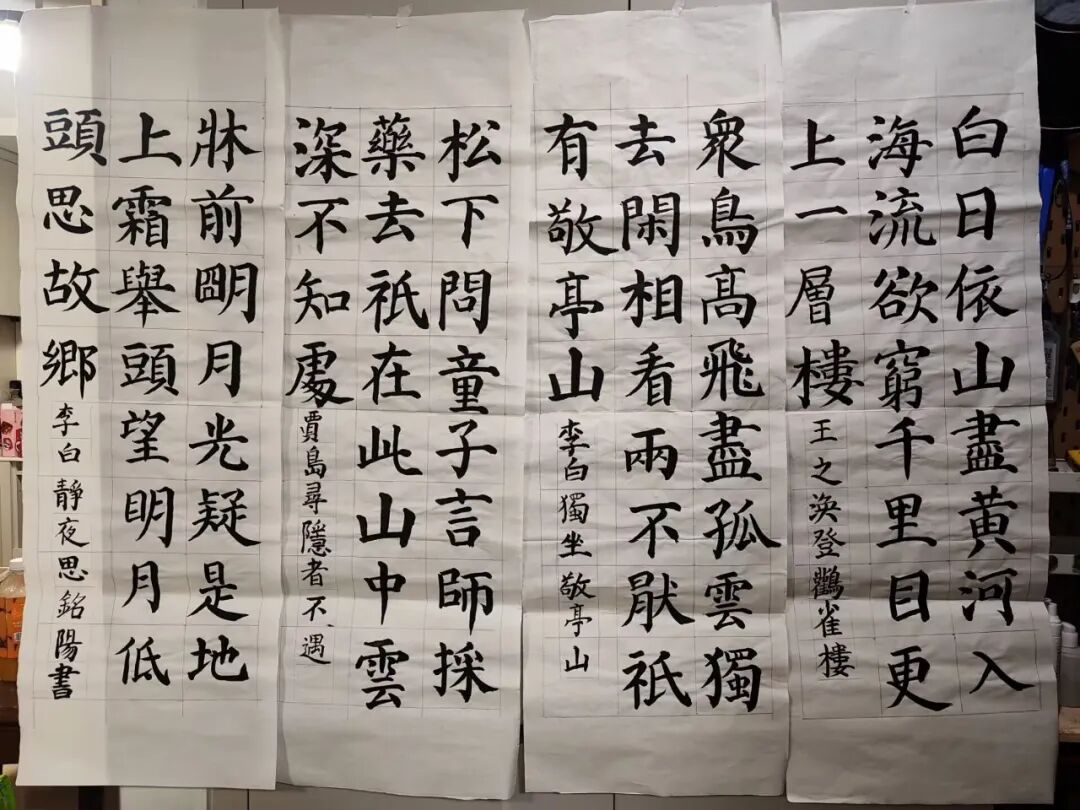 白日依山盡黄河入
海流欲窮千里目更
上一層樓王之渙登鸛雀樓
衆鳥髙飛盡孤雲獨
去閑相看兩不猒祇
有敬亭山李白獨坐敬亭山
松下問童子言師採
藥去祇在此山中雲
深不知處賈島尋隱者不遇
牀前朙月光疑是地
上霜舉頭望眀月低
頭思故鄉李白靜夜思銘陽書